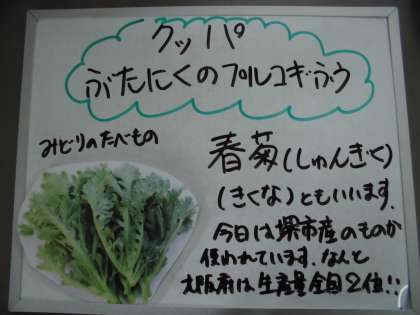 クッパ
ぶたにくのプルコギふう
みどりのたべもの
春菊(しゅんぎく)
(きくな)ともいいます。
今日は堺市産のものが
使われています。なんと
大阪府は生産量全国2位!!